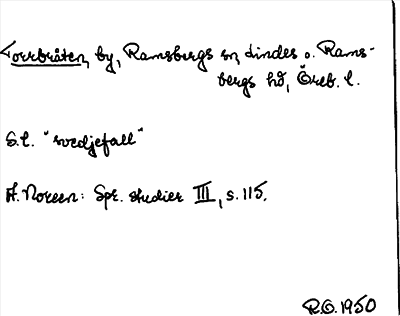 Torrbråten, by, Ramsbergs sn, Lindes o. Rams-
bergs hd, Öreb. l.
S.l. "svedjefall"
A. Noreen: Spr. studier III, s. 115.
R.O. 1950